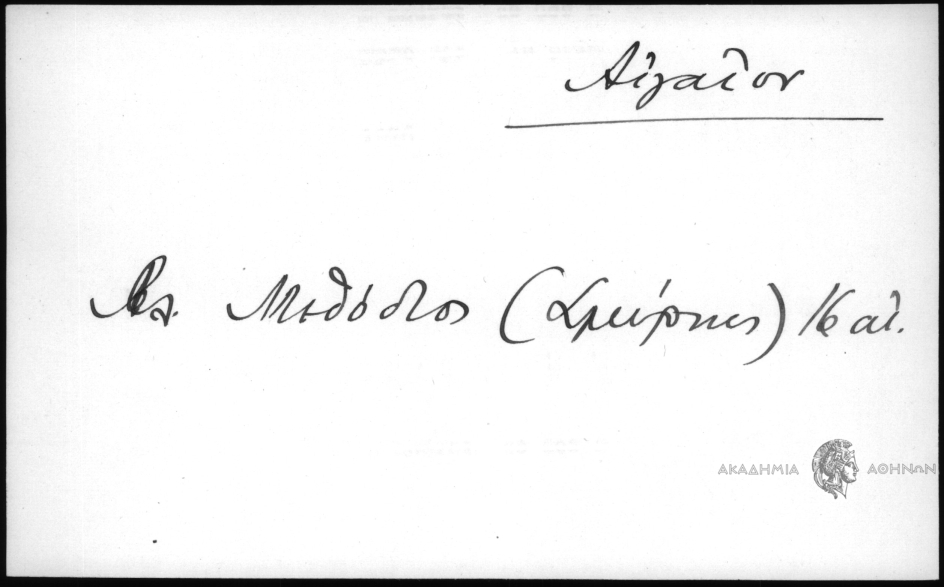 Αἰγαῖον
Αγ. Μεθόδιος (Σμύρνης) 16 αἰ.
ΑΚΑΔΗΜΙΑ ΑΘΗΝΩΝ